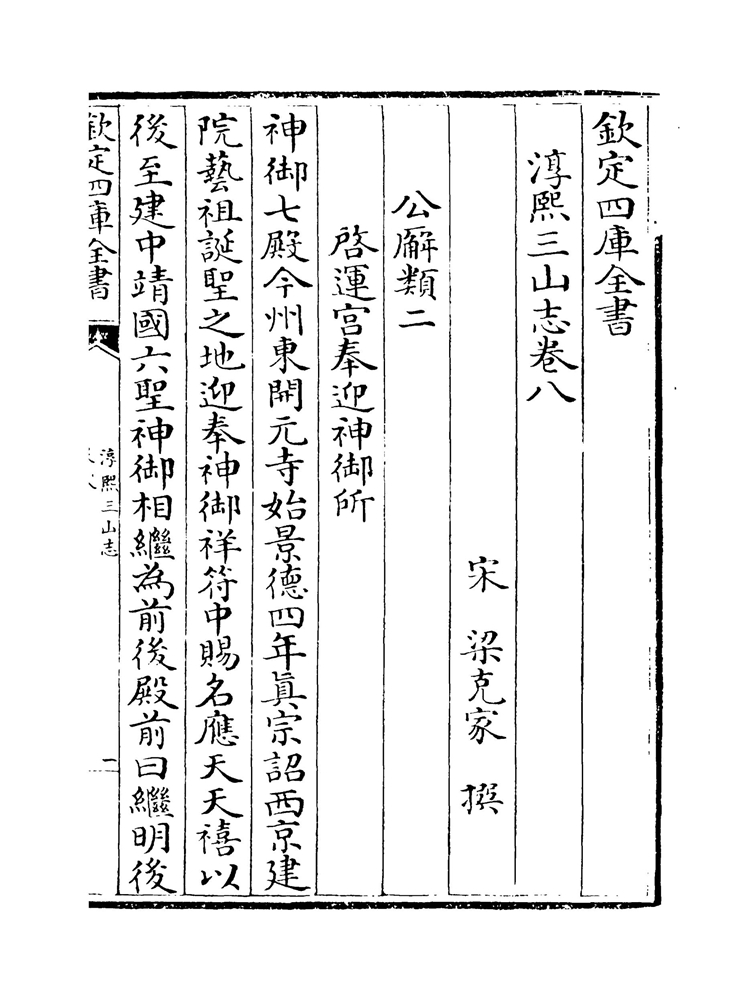 欽定四庫全書
淳熙三山志卷八
宋　梁克家　撰
公廨類二
啓運宫奉迎神御所
神御七殿今州東開元寺始景德四年眞宗詔西京建
院藝祖誕聖之地迎奉神御祥符中賜名應天天禧以
後至建中靖國六聖神御相繼為前後殿前曰繼明後
欽定四庫全書
淳熙三山志
一